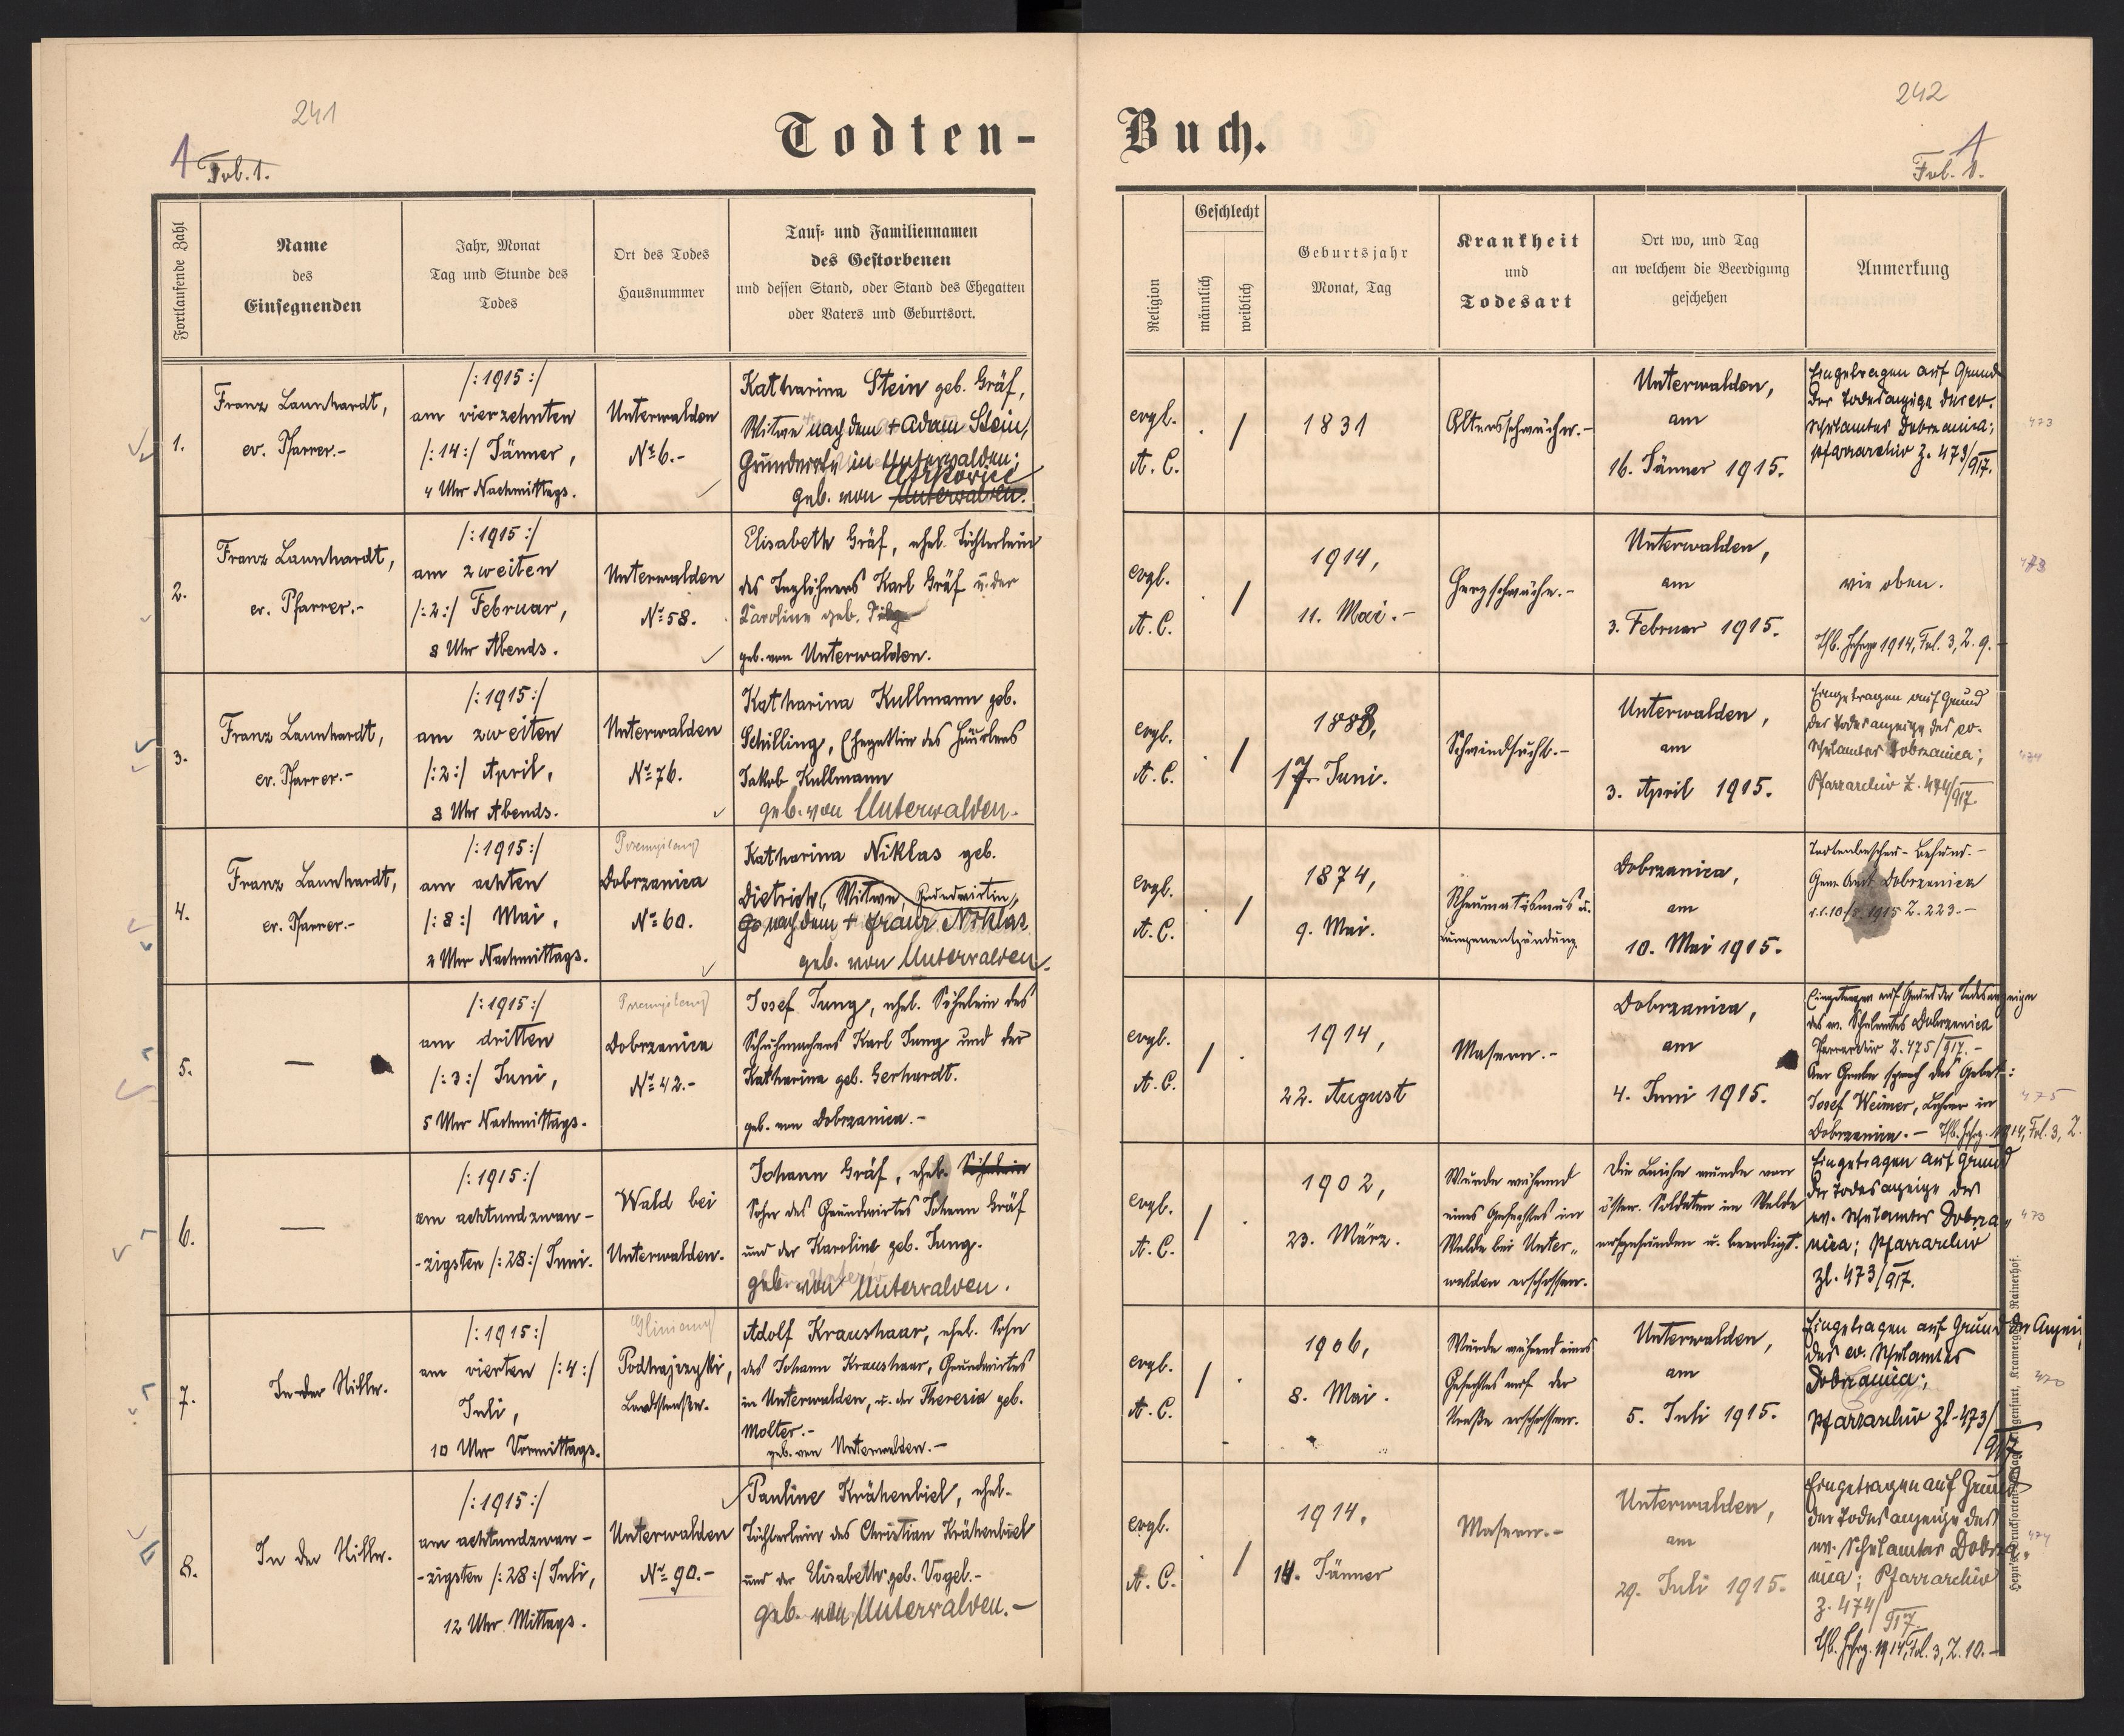 241
242
Todten-
Buch.
1 Fol. 1.
1
Fol. 1.
Fortlaufende Zahl
Name
des
Einsegnenden
Jahr, Monat
Tag und Stunde des
Todes
Ort des Todes
Hausnummer
Tauf- und Familiennamen
des Gestorbenen
und dessen Stand, oder Stand des Ehegatten
oder Vaters und Geburtsort.
Religion
Geschlecht
männlich
weiblich
Geburtsjahr
Monat, Tag
Krankheit
und
Todesart
Ort wo, und Tag
an welchem die Beerdigung
geschehen
Anmerkung
1.
Franz Launhardt,
ev. Pfarrer.-
/:1915:/
am vierzehnten
/:14:/ Jänner,
4 Uhr Nachmittags.
Unterwalden
№ 6.-
Katharina Stein geb. Gräf,
Witwe nach dem + Adam Stein,
in Unterwalden;
geb. von Unterwalden.
evgl.
A. C.
. /
1831
Altersschwäche.-
Unterwalden,
am
16. Jänner 1915.
Eingetragen auf Grund
der Todesanzeige des ev.
Schulamtes Dobrzanica;
Pfarrarchiv Z. 473/917.
473
2.
Franz Launhardt,
ev. Pfarrer.-
/:1915:/
am zweiten
/:2:/ Februar,
8 Uhr Abends.
Unterwalden
№ 58.
Elisabeth Gräf, ehel. Töchterlein
des Taglöhners Karl Gräf u. der
Karoline geb.
geb. von Unterwalden.
evgl.
A. C.
. /
1914,
11. Mai.-
Herzschwäche.-
Unterwalden,
am
3. Februar 1915.
wie oben.
Tfb. Jahrg. 1914, Fol. 3, Z. 9.-
473
3.
Franz Launhardt,
ev. Pfarrer.-
/:1915:/
am zweiten
/:2:/ April,
8 Uhr Abends.
Unterwalden
№ 76.
Katharina Kullmann geb.
Schilling, Ehegattin des Häuslers
Jakob Kullmann
geb. von Unterwalden.
evgl.
A. C.
. /
1888,
17. Juni.
Schwindsucht.-
Unterwalden,
am
3. April 1915.
Eingetragen auf Grund
der Todesanzeige des ev.
Schulamtes Dobrzanica;
Pfarrarchiv Z. 474/917.
474
4.
Franz Launhardt,
ev. Pfarrer.-
/:1915:/
am achten
/:8:/ Mai,
2 Uhr Nachmittags.
Przemyslany
Dobrzanica
№ 60.
Katharina Niklas geb.
Dietrich, Witwe, Grundwirtin,
nach dem + Franz Niklas
geb. von Unterwalden.
evgl.
A. C.
. /
1874,
9. Mai.
Rheumatismus u.
Lungenentzündung
Dobrzanica,
am
10. Mai 1915.
Todtenbeschau-Befund.-
Gem. Amt Dobrzanica
10/5. 1915 Z. 223.-
5.
—
/:1915:/
am dritten
/:3:/ Juni,
5 Uhr Nachmittags.
Przemyslany
Dobrzanica
№ 42.-
Josef Jung, ehel. Söhnlein des
Schuhmachers Karl Jung und der
Katharina geb. Gerhardt.
geb. von Dobrzanica.-
evgl.
A. C.
/ .
1914,
22. August
Masern.-
Dobrzanica,
am
4. Juni 1915.
Eingetragen auf Grund der Todesanzeigen
des ev. Schulamtes Dobrzanica
Pfarrarchiv Z. 475/917.-
Am Grabe sprach das Gebet:
Josef Weimer, Lehrer in
Dobrzanica.- Tfb. Jahrg. 1914, Fol. 3, Z.
475
6.
—
/:1915:/
am achtundzwan-
-zigsten /:28:/ Juni.
Wald bei
Unterwalden.
Johann Gräf, ehel. Söhnlein
Sohn des Grundwirtes Johann Gräf
und der Karoline geb. Jung.
geb. von Unterwalden.
evgl.
A. C.
/ .
1902,
23. März.
Wurde während
eines Gefechtes im
Walde bei Unter-
walden erschossen.
Die Leiche wurde von
österr. Soldaten im Walde
aufgefunden u. beerdigt.
Eingetragen auf Grund
der Todesanzeige des
ev. Schulamtes Dobrza-
nica; Pfarrarchiv
Zl. 473/917.
473
7.
In der Stille.
/:1915:/
am vierten /:4:/
Juli,
10 Uhr Vormittags.
Gliniany
Podhajczyki,
Landstrasse.
Adolf Kraushaar, ehel. Sohn
des Johann Kraushaar, Grundwirtes
in Unterwalden, u. der Theresia geb.
Molter.-
geb. von Unterwalden.-
evgl.
A. C.
/ .
1906,
8. Mai.
Wurde während eines
Gefechtes auf der
Straße erschossen.
Unterwalden,
am
5. Juli 1915.
Eingetragen auf Grund der Anzei
des ev. Schulamtes
Dobrzanica;
Pfarrarchiv Zl. 473/
917
8.
In der Stille.
/:1915:/
am achtundzwan-
-zigsten /:28:/ Juli,
12 Uhr Mittags.
Unterwalden
№ 90.-
Pauline Krähenbiel, ehel.
Töchterlein des Christian Krähenbiel
und der Elisabeth geb. Vogel.-
geb. von Unterwalden.-
evgl.
A. C.
. /
1914.
14. Jänner
Masern.-
Unterwalden,
am
29. Juli 1915.
Eingetragen auf Grund
der Todesanzeige des
ev. Schulamtes Dobrza-
nica; Pfarrarchiv
Z. 474/917
Tfb. Jahrg. 1914, Fol. 3, Z. 10.-
474